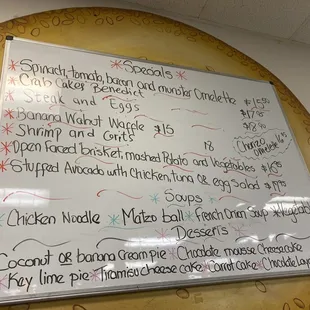 Specials
Spinach, tomato, bacon and munster Omelette $15.95
Crab Cakes Benedict $17.95
Steak and Eggs $18.95
Banana Walnut Waffle $15
Shrimp and Grits 18
Chorizo omelette
Open Faced brisket, mashed Potato and Vegetables $16.95
Stuffed Avocado with chicken, tuna OR egg Salad
Soups
Chicken Noodle Matzo ball French Onion Soup Vegetable
Desserts
Coconut OR banana cream pie Chocolate mousse Cheesecake
Key lime pie Tiramisu cheese cake Carrot cake Chocolate Laye